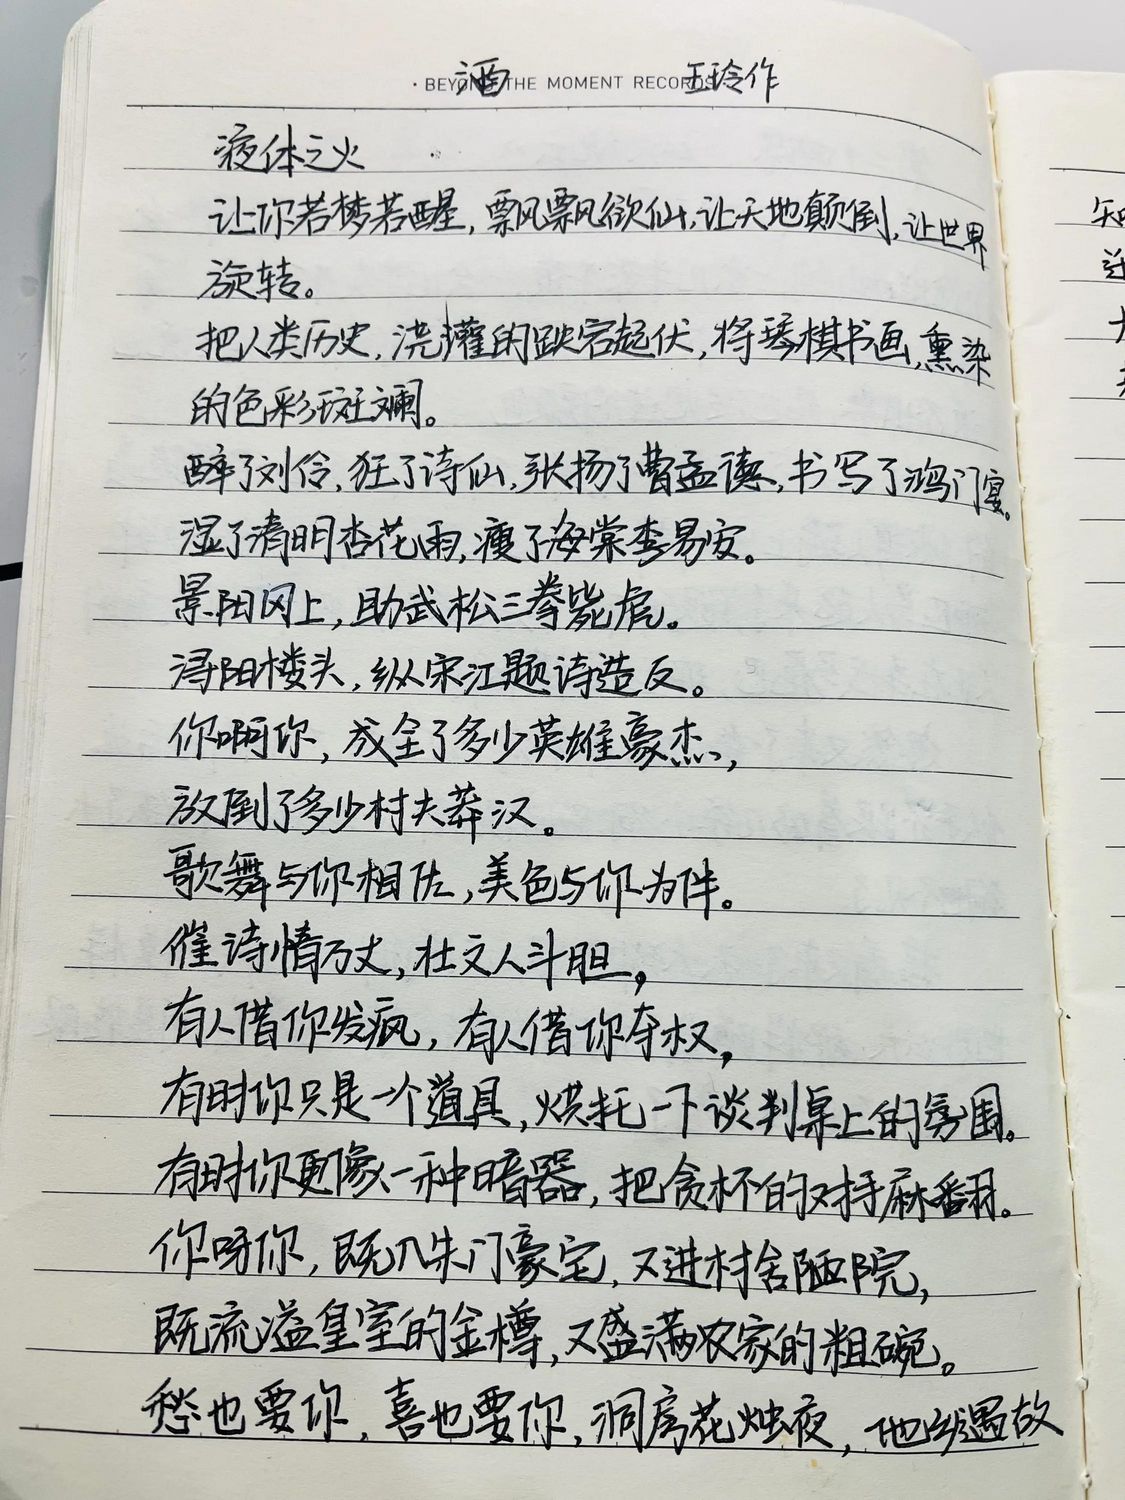 · BEYOND THE MOMENT RECORDS
酒 王玲作
液体之火
让你若梦若醒，飘飘欲仙，让天地颠倒，让世界
旋转。
把人类历史，浇灌的跌宕起伏，将琴棋书画，熏染
的色彩斑斓。
醉了刘伶，狂了诗仙，张扬了曹孟德，书写了鸿门宴。
湿了清明杏花雨，瘦了海棠李易安。
景阳冈上，助武松三拳毙虎。
浔阳楼头，纵宋江题诗造反。
你啊你，成全了多少英雄豪杰，
放倒了多少村夫莽汉。
歌舞与你相佐，美色与你为伴。
催诗情万丈，壮文人斗胆，
有人借你发疯，有人借你夺权，
有时你只是一个道具，烘托一下谈判桌上的氛围。
有时你更像一种暗器，把贪杯的对手麻翻。
你呀你，既入朱门豪宅，又进村舍陋院，
既流溢皇室的金樽，又盛满农家的粗碗。
愁也要你，喜也要你，洞房花烛夜，他乡遇故